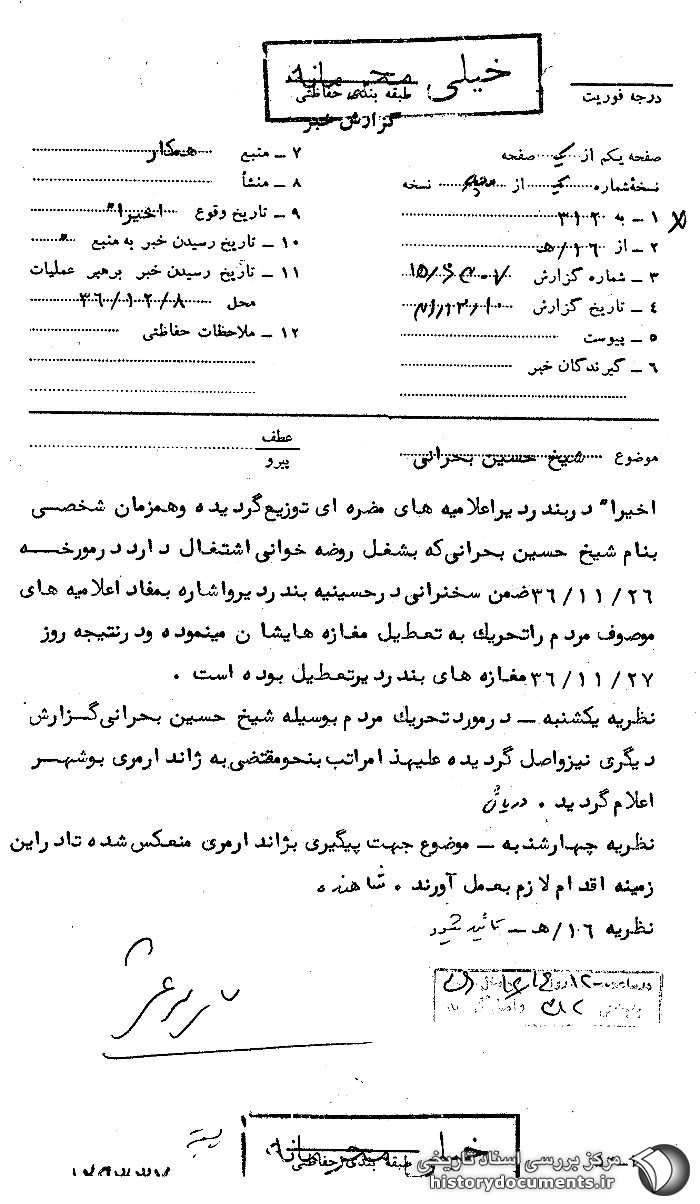 خیلی محرمانه
طبقه بندی حفاظتی
درجه فوریت
گزارش خبر
صفحه یکم از یک صفحه
نسخهٔ شماره یک از نسخه
۱ - به ۳۱۲
۲ - از ۱۶/هـ
۳ - شماره گزارش
۴ - تاریخ گزارش
۵ - پیوست
۶ - گیرندگان خبر
۷ - منبع همکار
۸ - منشأ
۹ - تاریخ وقوع اخیراً
۱۰ - تاریخ رسیدن خبر به منبع "
۱۱ - تاریخ رسیدن خبر برهبر عملیات
محل ۳۶/۱۲/۸
۱۲ - ملاحظات حفاظتی
موضوع شیخ حسین بحرانی
عطف
پیرو
اخیراً دربندر دیر اعلامیه های مضره ای توزیع گردیده وهمزمان شخصی
بنام شیخ حسین بحرانی که بشغل روضه خوانی اشتغال دارد درمورخه
۳۶/۱۱/۲۶ ضمن سخنرانی درحسینیه بندر دیرواشاره بمفاد اعلامیه های
موصوف مردم راتحریک به تعطیل مغازه هایشان مینموده ودرنتیجه روز
۳۶/۱۱/۲۷ مغازه های بندر دیرتعطیل بوده است .
نظریه یکشنبه - درمورد تحریک مردم بوسیله شیخ حسین بحرانی گزارش
دیگری نیزواصل گردیده علیهذا مراتب بنحومقتضی به ژاندارمری بوشهر
اعلام گردید .
نظریه چهارشنبه - موضوع جهت پیگیری بژاندارمری منعکس شده تادراین
زمینه اقدام لازم بعمل آورند . شاهنده
نظریه ۱۶/هـ - تائید میشود
خیلی محرمانه
طبقه بندی حفاظتی
مرکز بررسی اسناد تاریخی
historydocuments.ir